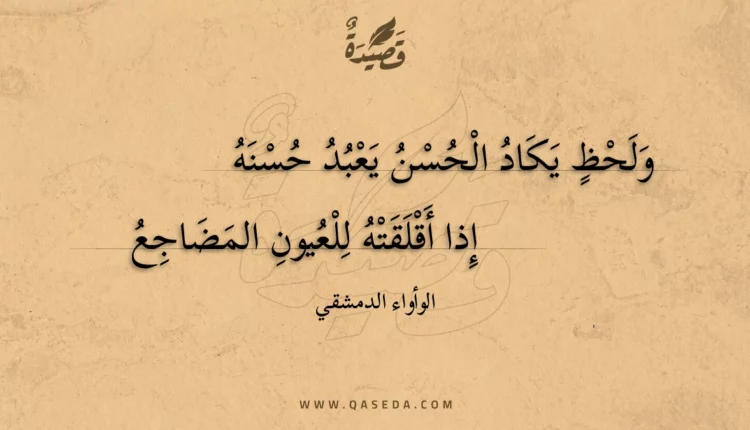 قَصِيْدَةٌ
وَلَحْظٍ يَكَادُ الْحُسْنُ يَعْبُدُ حُسْنَهُ
إِذا أَقْلَقَتْهُ لِلْعُيونِ المَضَاجِعُ
الوأواء الدمشقي
WWW.QASEDA.COM